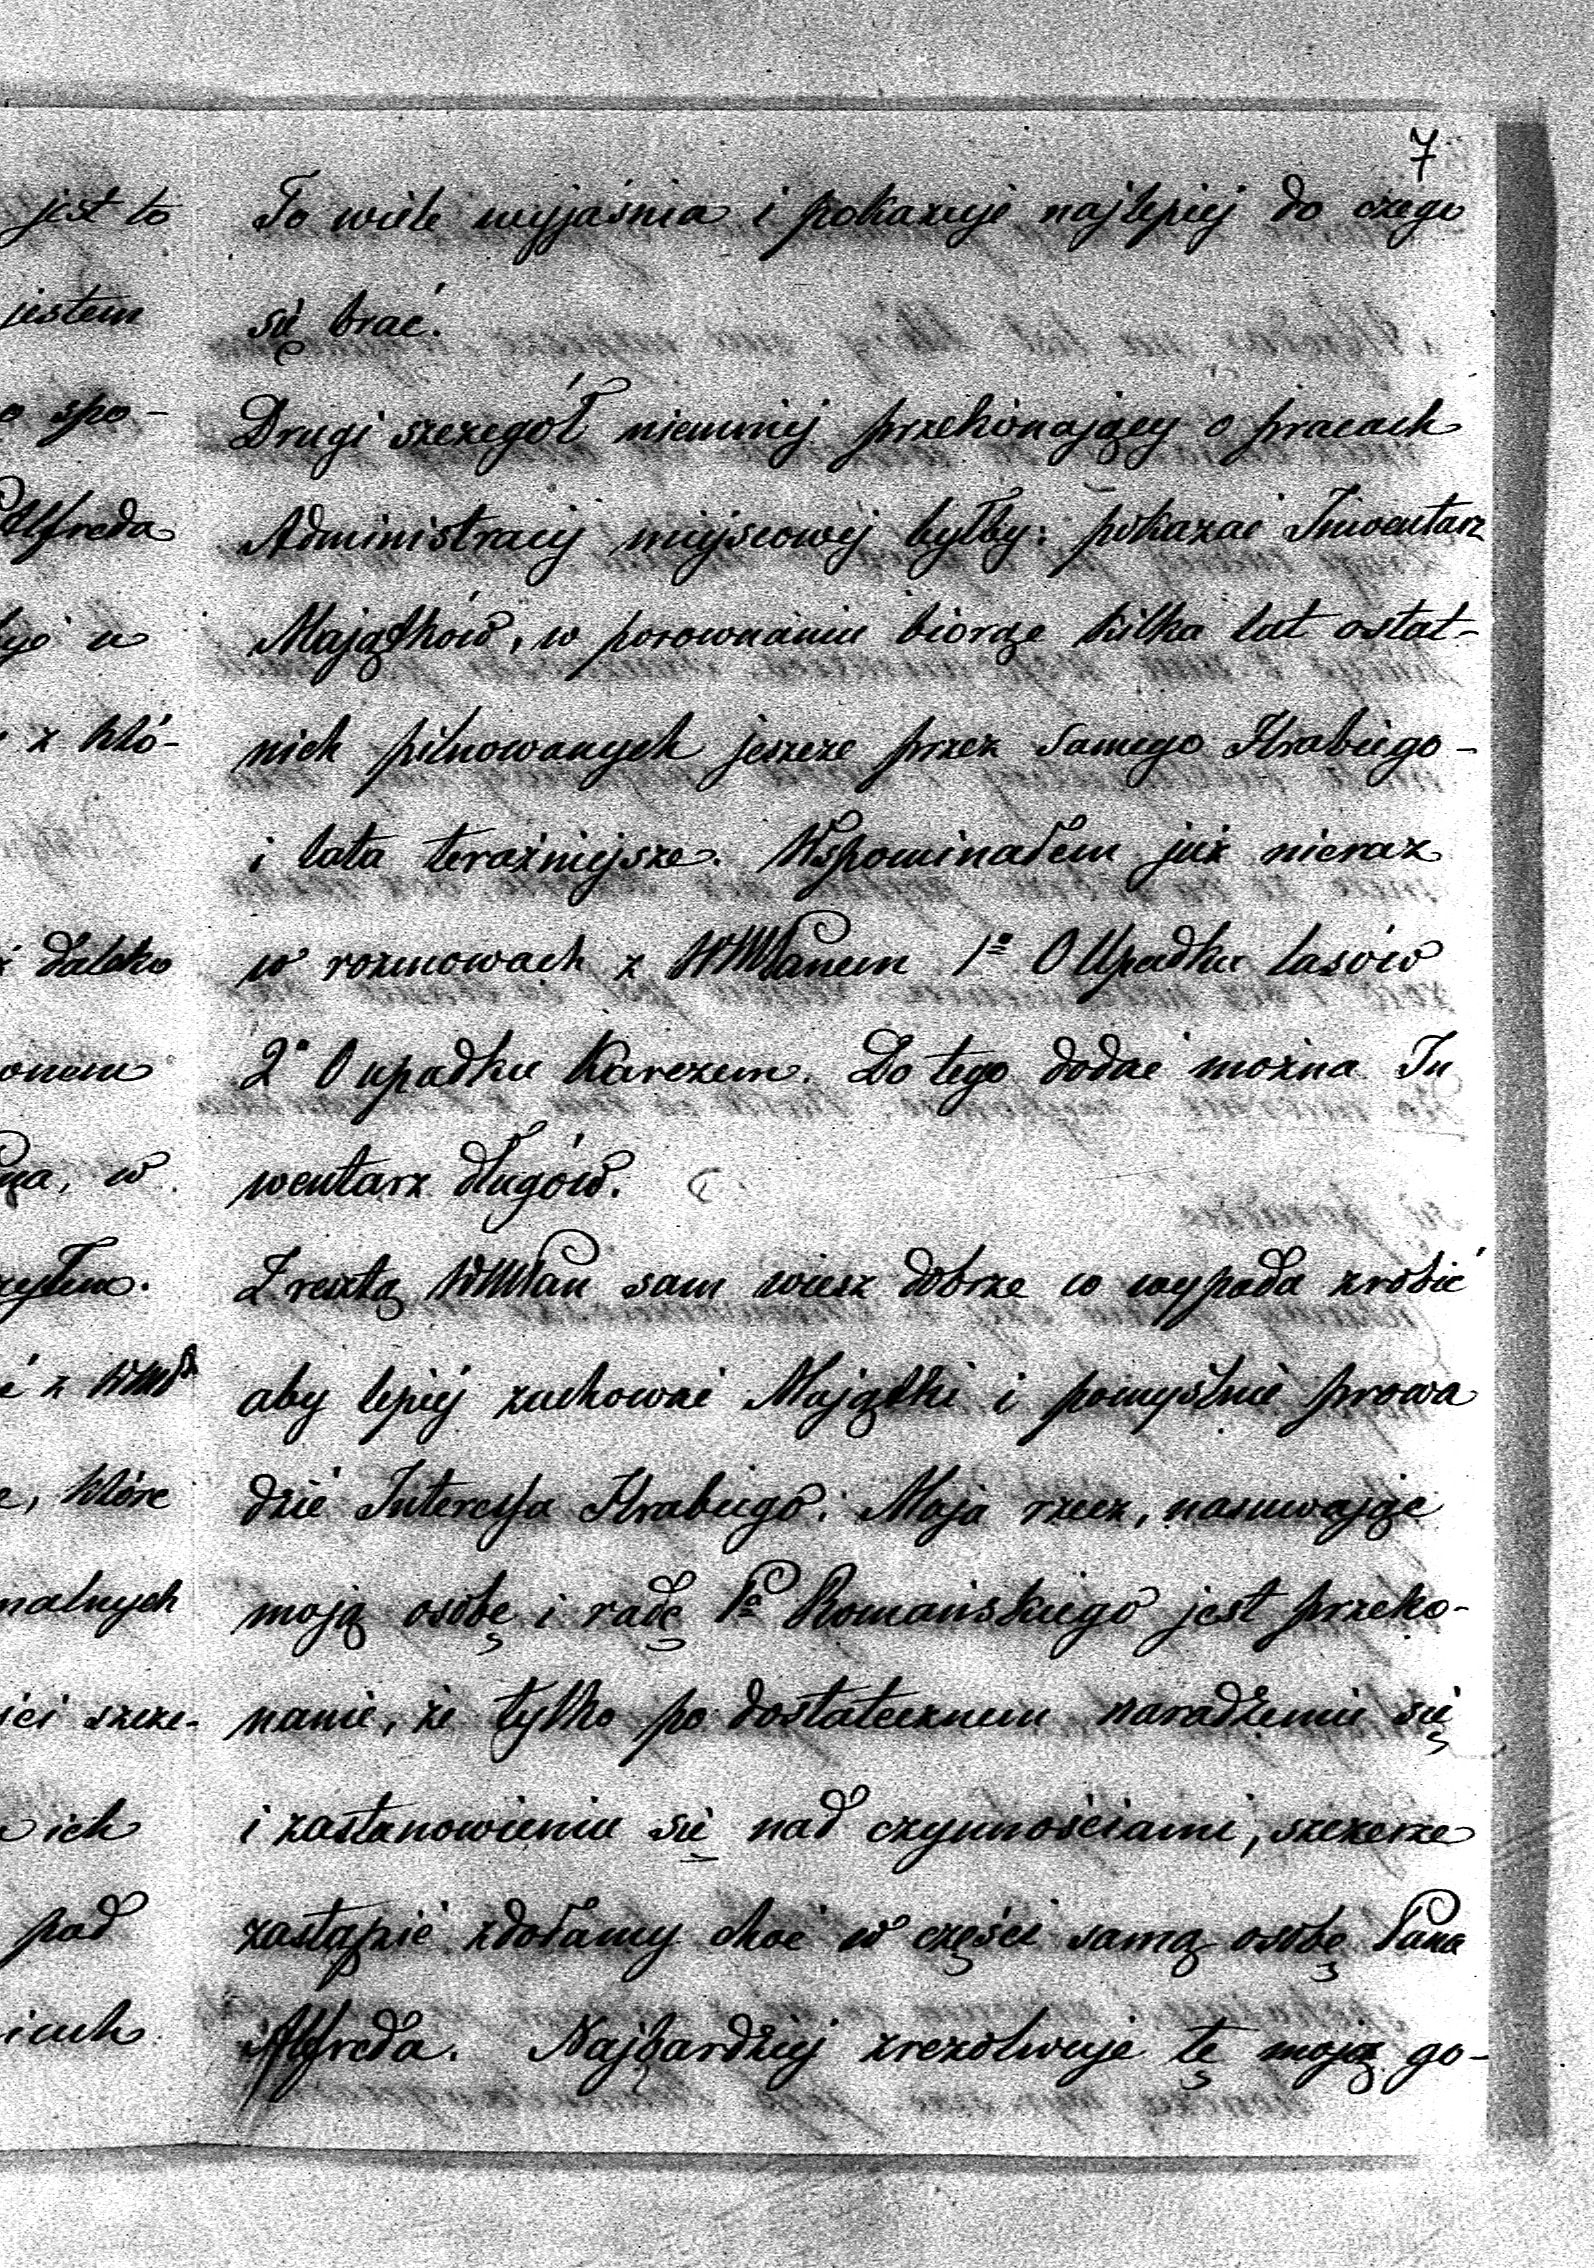 7
To wiele wyjaśnia i pokazuje najlepiej do czego
się brać.
Drugi szczegół niemniej przekonający o pracach
Administracij miejscowej byłby: pokazać Inwentarz
Majątków, w porownaniu biorąc kilka lat ostat-
nich pilnowanych jeszcze przez samego Hrabiego -
i lata teraźniejsze. Wspominałem już nieraz
w rozmowach z WMPanem 1º O Upadku lasów
2º O upadku Karczem. Do tego dodać można In
wentarz długów.
Zresztą WMPan sam wiesz dobrze co wypada zrobić
aby lepiej zachować Majątki i pomyślnie prowa
dzić Interessa Hrabiego. Moja rzecz, nasuwając
moją osobę i radę Pª Romańskiego jest przeko-
nanie, że tylko po dostatecznem naradzeniu się
i zastanowieniu się nad czynnościami, szczerze
zastąpić zdołamy choć w części samą osobę Pana
Alfreda. Najbardziej zrezolwuje tę moją go-
jest to
jestem
spo-
Alfreda
u
z któ-
daleko
w
z WMP
które
nalnych
szcze-
ich
pod